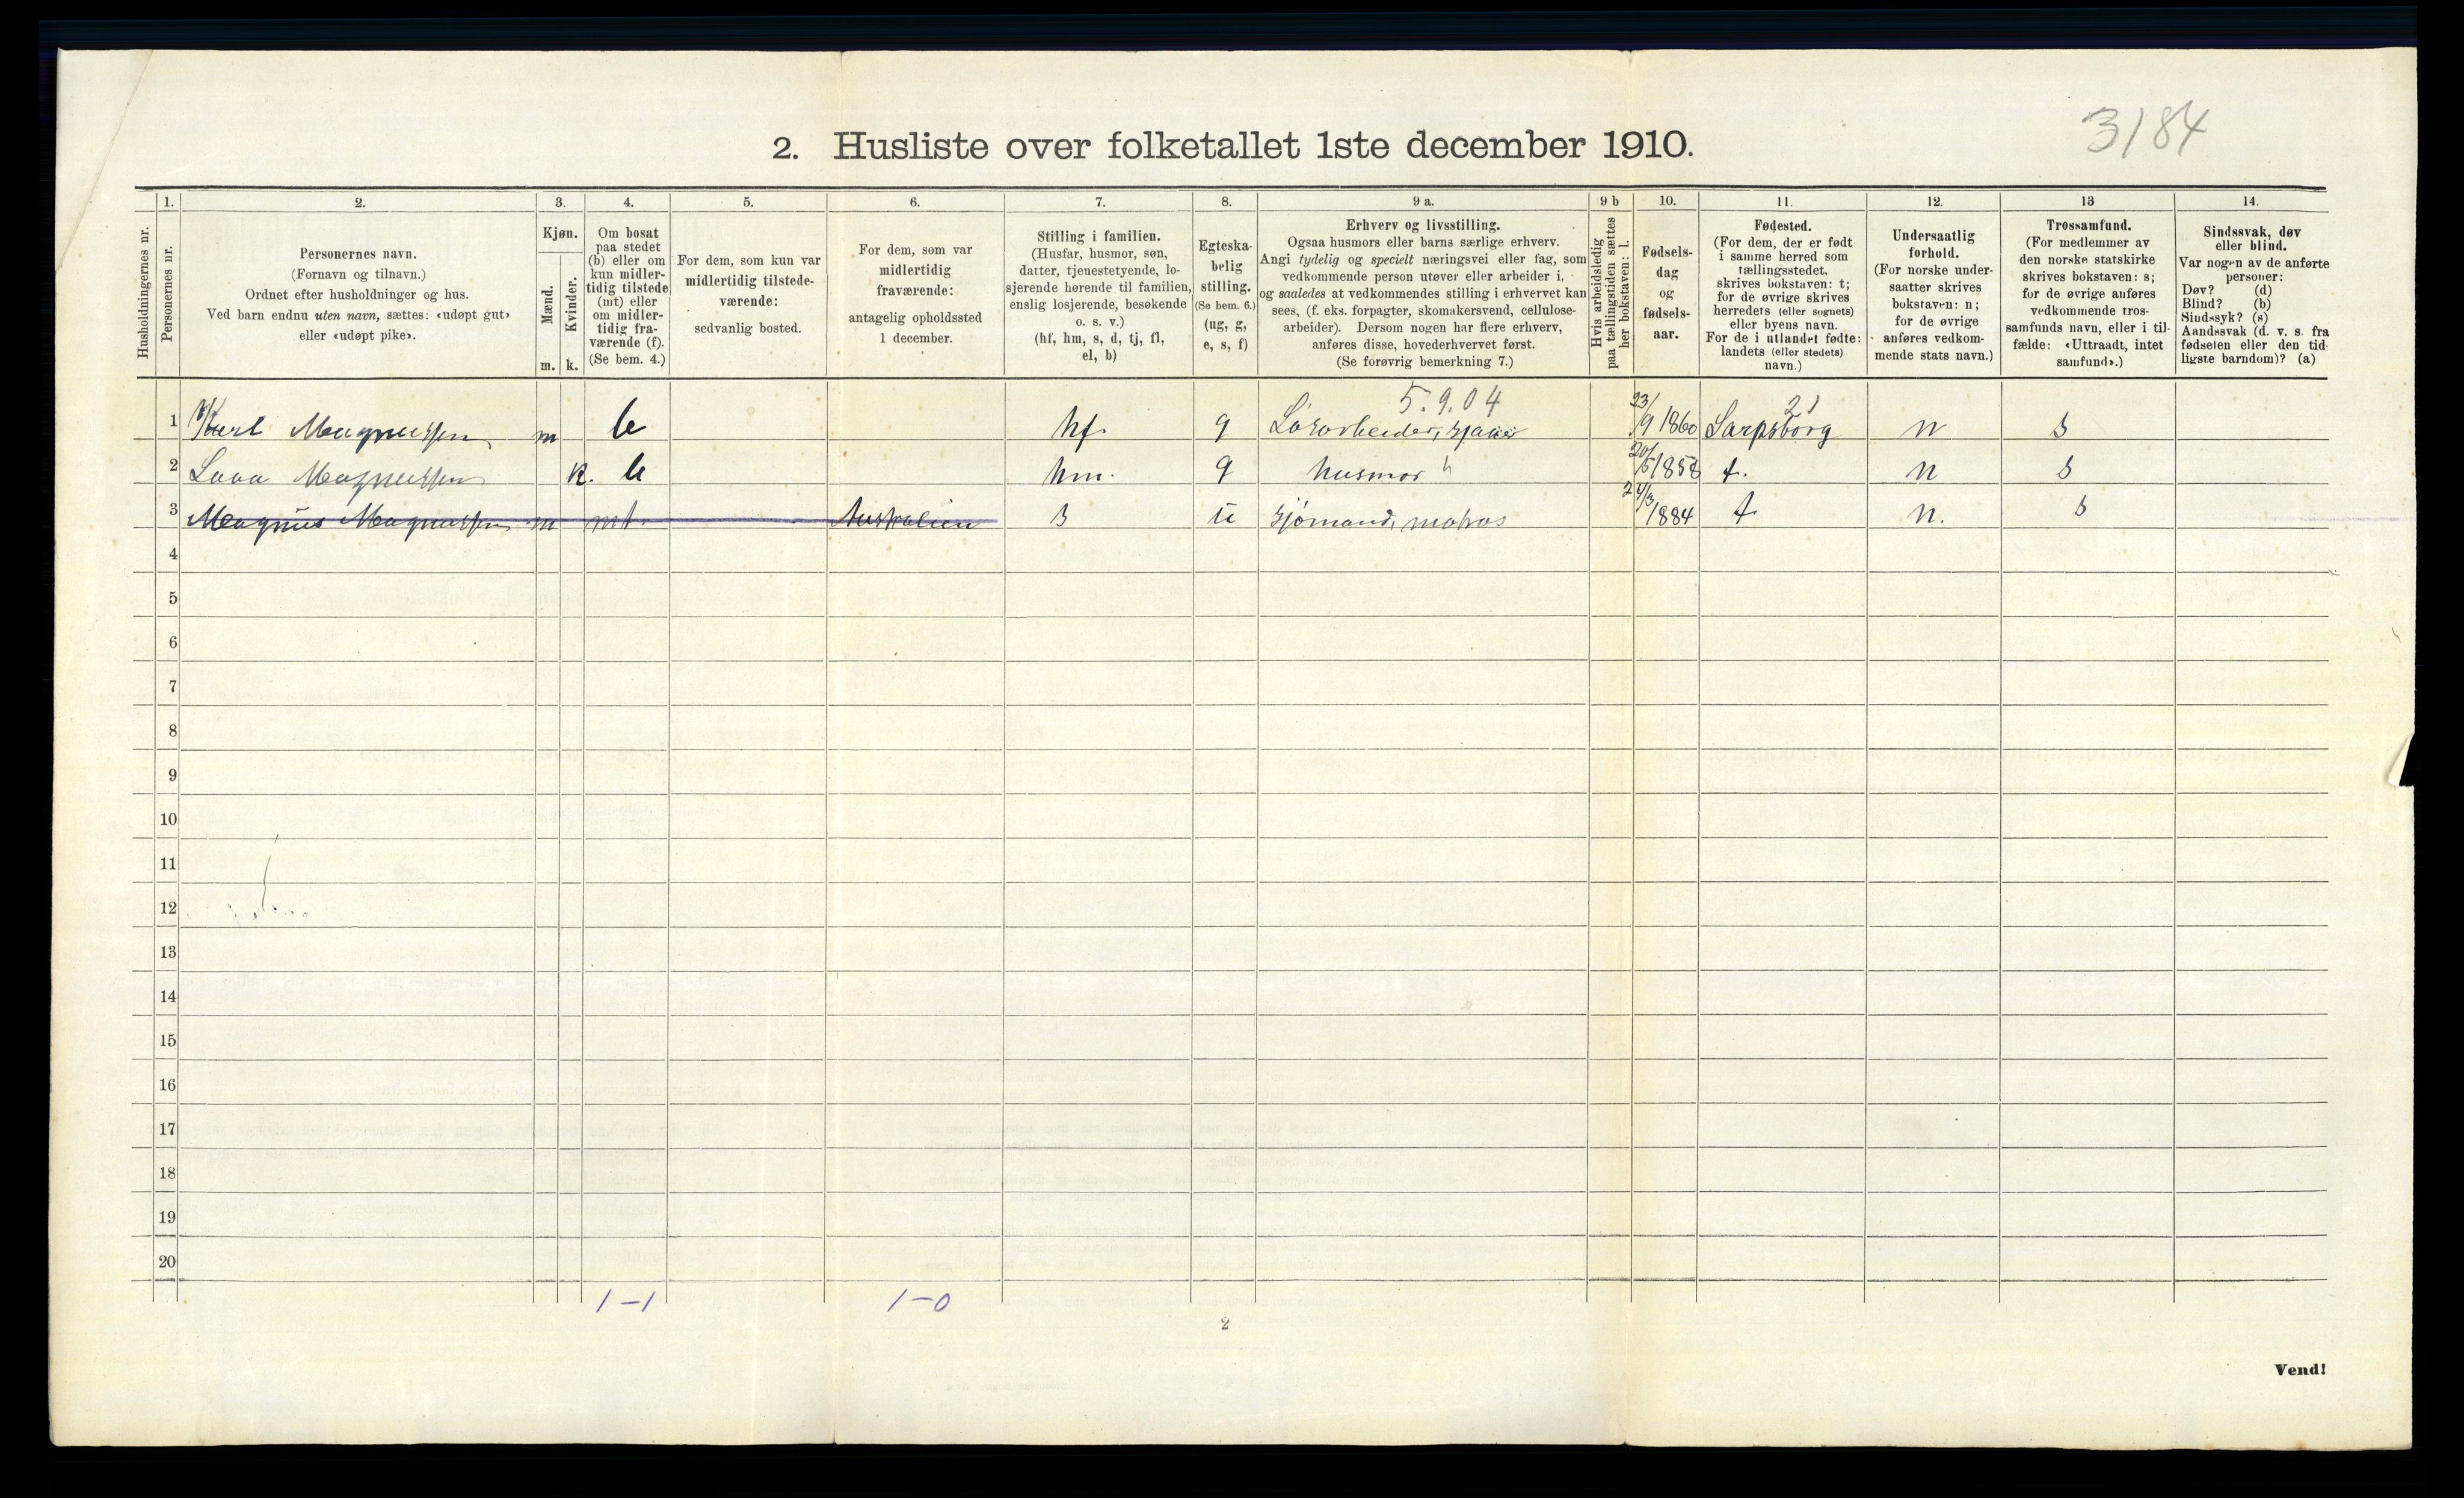 3184
2. Husliste over folketallet 1ste december 1910.
Husholdningernes nr.
1.
Personernes nr.
2.
Personernes navn.
(Fornavn og tilnavn.)
Ordnet efter husholdninger og hus.
Ved barn endnu uten navn, sættes: «udøpt gut»
eller «udøpt pike».
3.
Kjøn.
Mænd.
m.
Kvinder.
k.
4.
Om bosat
paa stedet
(b) eller om
kun midler-
tidig tilstede
(mt) eller
om midler-
tidig fra-
værende (f).
(Se bem. 4.)
5.
For dem, som kun var
midlertidig tilstede-
værende:
sedvanlig bosted.
6.
For dem, som var
midlertidig
fraværende:
antagelig opholdssted
1 december.
7.
Stilling i familien.
(Husfar, husmor, søn,
datter, tjenestetyende, lo-
sjerende hørende til familien,
enslig losjerende, besøkende
o. s. v.)
(hf, hm, s, d, tj, fl,
el, b)
8.
Egteska-
belig
stilling.
(Se bem. 6.)
(ug, g,
e, s, f)
9 a.
Erhverv og livsstilling.
Ogsaa husmors eller barns særlige erhverv.
Angi tydelig og specielt næringsvei eller fag, som
vedkommende person utøver eller arbeider i,
og saaledes at vedkommendes stilling i erhvervet kan
sees, (f. eks. forpagter, skomakersvend, cellulose-
arbeider). Dersom nogen har flere erhverv,
anføres disse, hovederhvervet først.
(Se forøvrig bemerkning 7.)
9 b
Hvis arbeidsledig
paa tællingstiden sættes
her bokstaven: l.
10.
Fødsels-
dag
og
fødsels-
aar.
11.
Fødested.
(For dem, der er født
i samme herred som
tællingsstedet,
skrives bokstaven: t;
for de øvrige skrives
herredets (eller sognets)
eller byens navn.
For de i utlandet fødte:
landets (eller stedets)
navn.)
12.
Undersaatlig
forhold.
(For norske under-
saatter skrives
bokstaven: n;
for de øvrige
anføres vedkom-
mende stats navn.)
13
Trossamfund.
(For medlemmer av
den norske statskirke
skrives bokstaven: s;
for de øvrige anføres
vedkommende tros-
samfunds navn, eller i til-
fælde: «Uttraadt, intet
samfund».)
14.
Sindssvak, døv
eller blind.
Var nogen av de anførte
personer:
Døv? (d)
Blind? (b)
Sindssyk? (s)
Aandssvak (d. v. s. fra
fødselen eller den tid-
ligste barndom)? (a)
5.9.04 21
1 Karl Magnussen m b hf. g Løsarbeider, 23/9 1860 Sarpsborg n s
2 Magnussen k. b hm. g husmor 20/5 1858 t. n s
3 Magnus Magnussen m mt. Australien s u sjömand, matros 24/3 1884 t n. s
4
5
6
7
8
9
10
11
12
13
14
15
16
17
18
19
20
1-1 1-0
2
Vend!